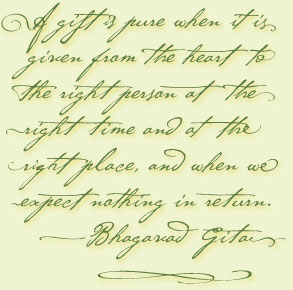 A gift is pure when it is
given from the heart to
the right person at the
right time and at the
right place, and when we
expect nothing in return.
Bhagavad Gita